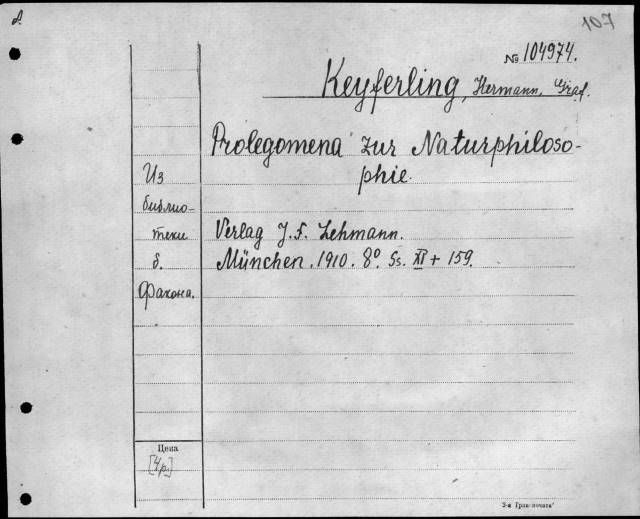 107
№ 104974.
Keyserling, Hermann, Graf.
Prolegomena zur Naturphiloso-
phie.
Из
библио-
теки
б.
Факона.
Verlag J. F. Lehmann.
München. 1910. 8°. Ss. XI + 159.
Цена
[4р.]
2-я Гран. печати